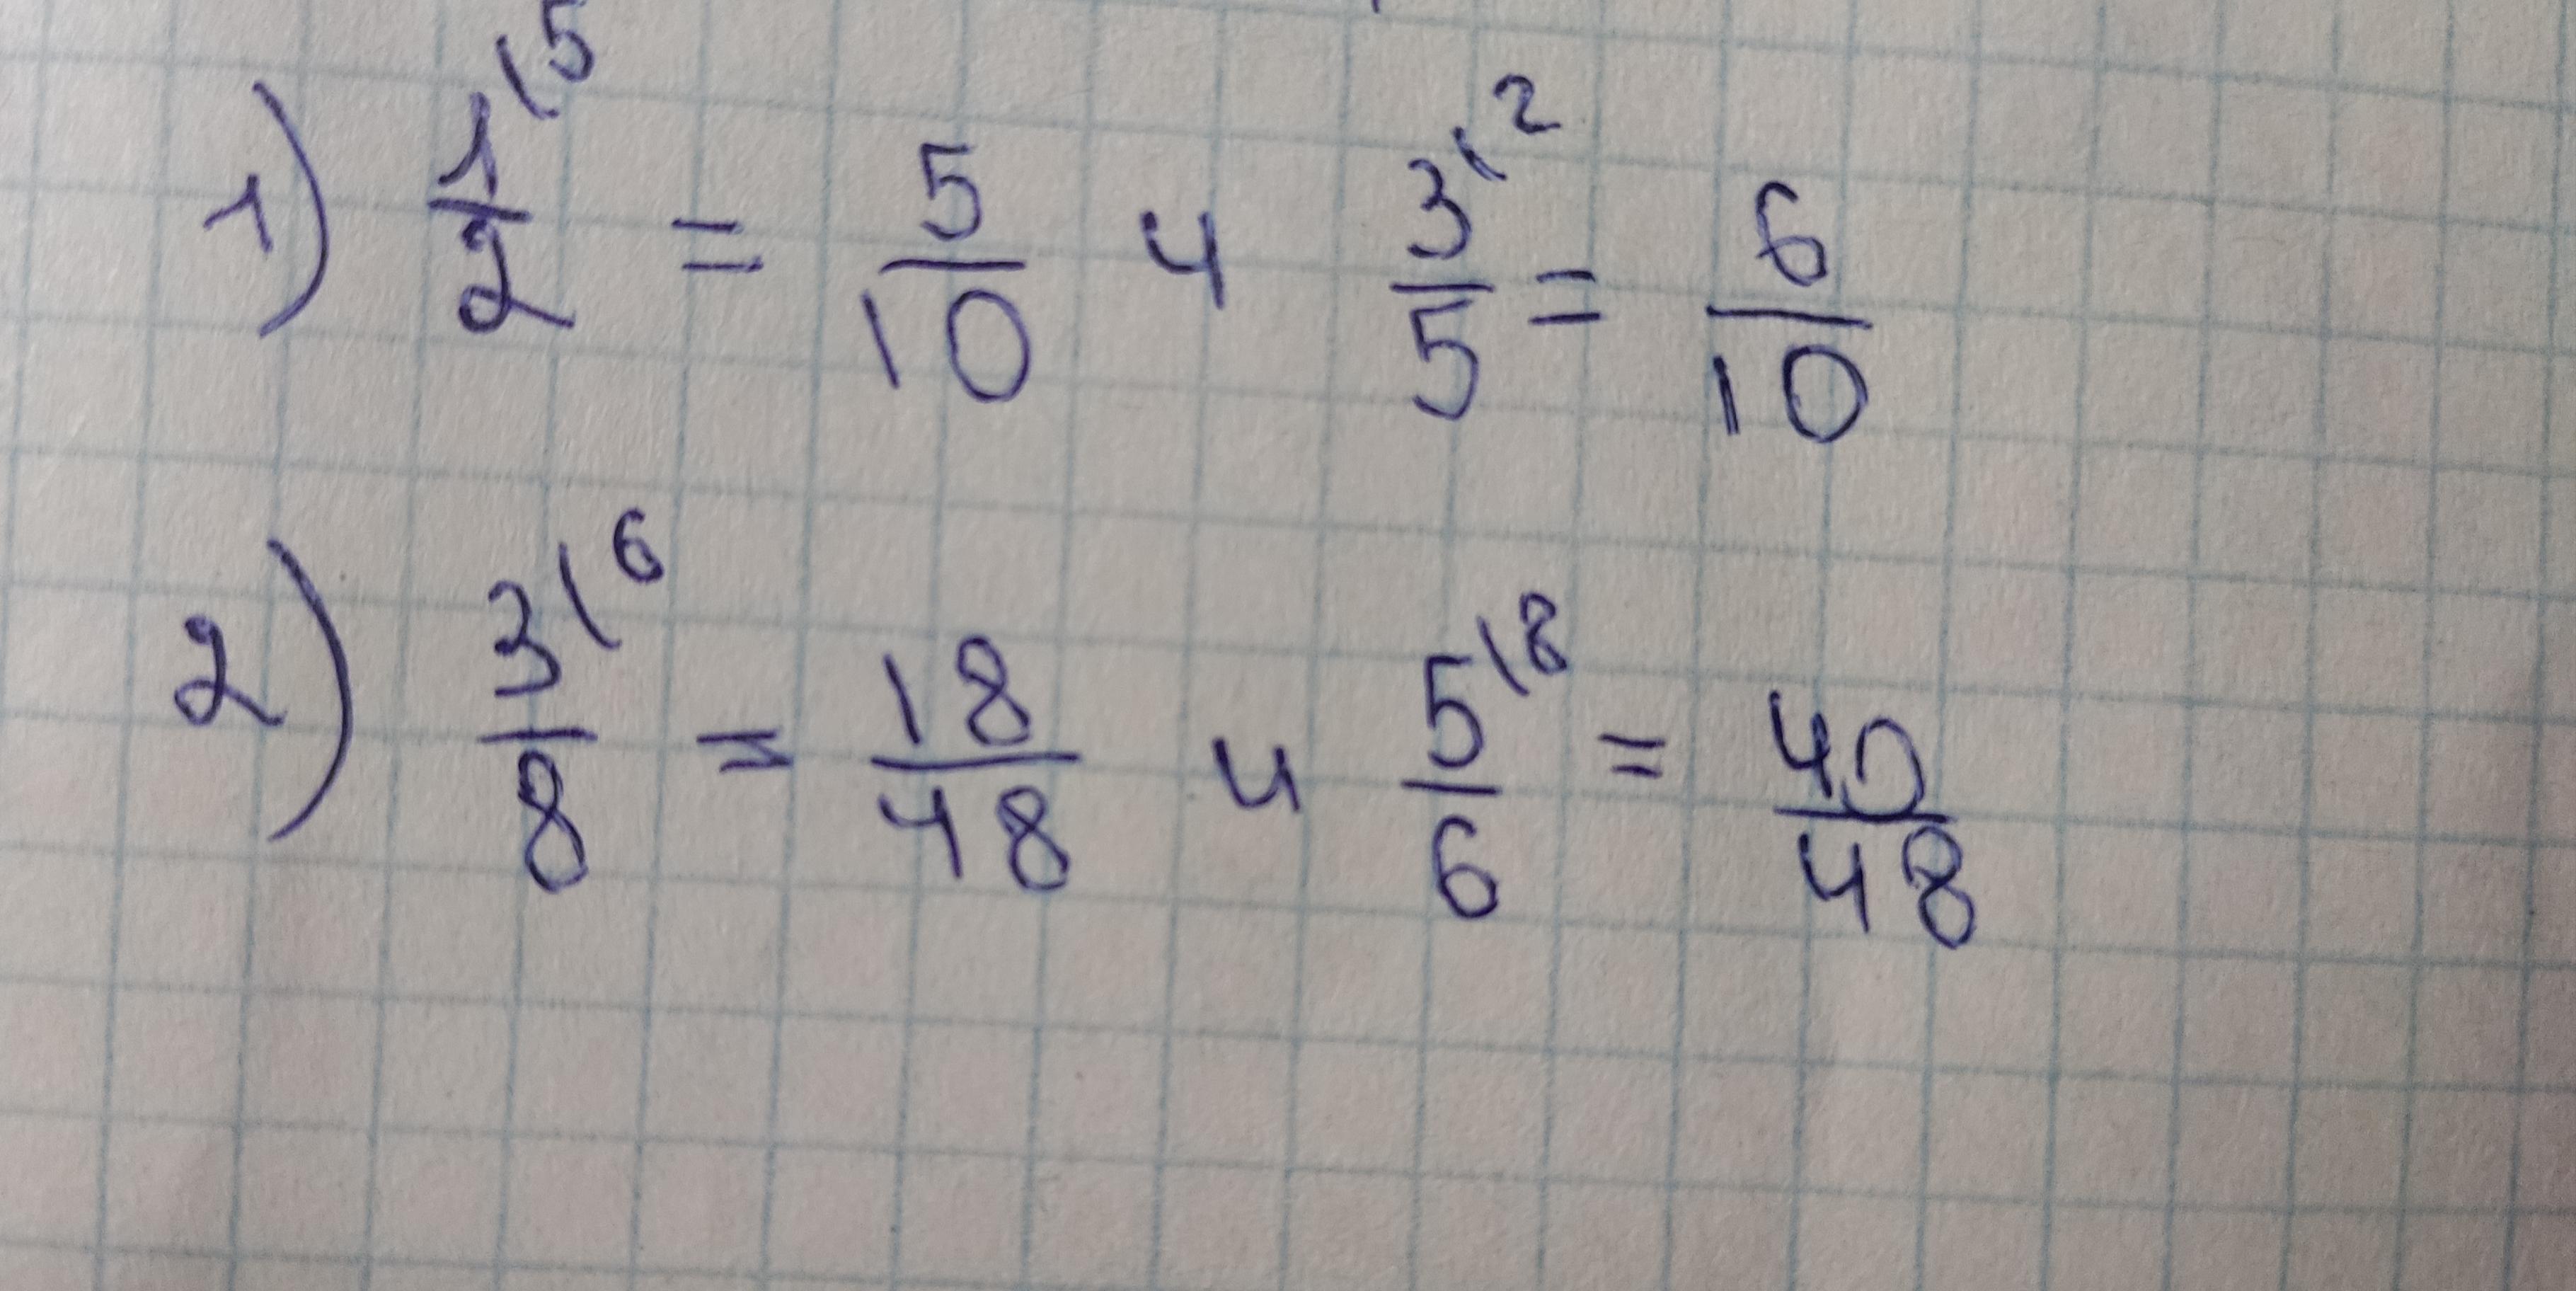 1) 1/2 \5 = 5/10 и 3/5 \2 = 6/10
2) 3/8 \6 = 18/48 и 5/6 \8 = 40/48